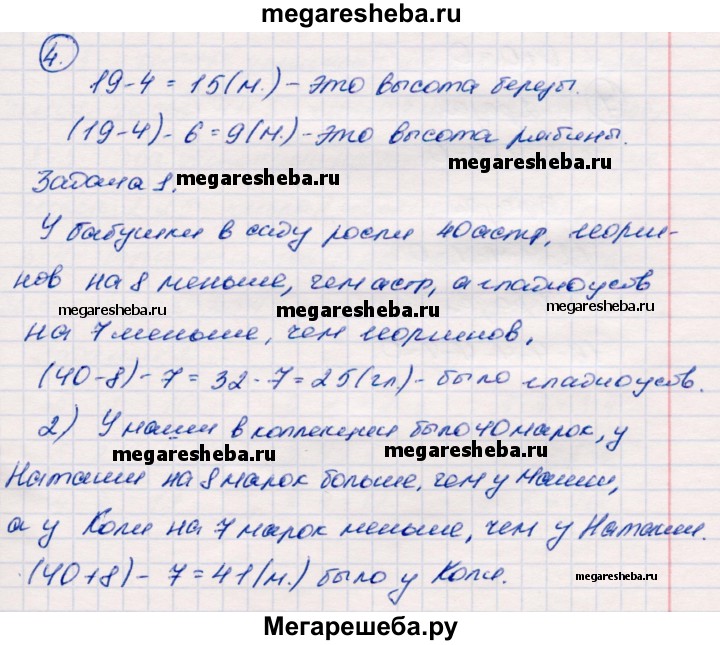 megaresheba.ru
4.
19-4 = 15(м.) - это высота березы.
(19-4) - 6 = 9(м.) - это высота рябины.
Задача 1. megaresheba.ru megaresheba.ru
У бабушки в саду росли 40 астр, георги-
нов на 8 меньше, чем астр, а гладиолусов
megaresheba.ru megaresheba.ru
на 7 меньше, чем георгинов,
(40-8) - 7 = 32 - 7 = 25(гл.) - было гладиолусов.
2) У Маши в коллекции было 40 марок, у
megaresheba.ru megaresheba.ru
Наташи на 8 марок больше, чем у Маши,
а у Коли на 7 марок меньше, чем у Наташи.
(40+8) - 7 = 41(м.) было у Коли.
megaresheba.ru
Мегарешеба.ру